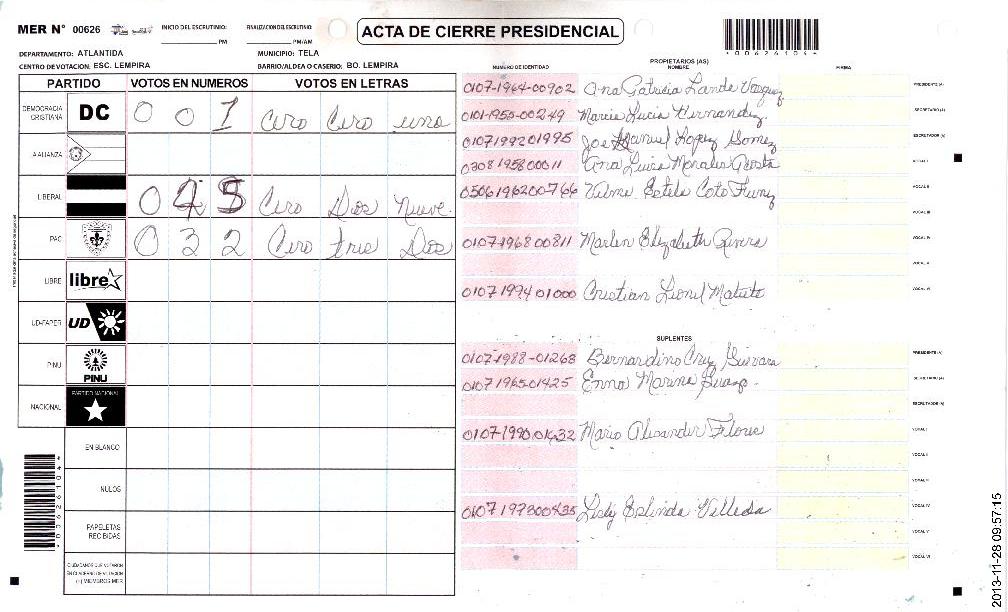 MER N° 00626 INICIO DEL ESCRUTINIO: PM FINALIZACION DEL ESCRUTINIO: PM/AM
ACTA DE CIERRE PRESIDENCIAL
*00626104*
DEPARTAMENTO: ATLANTIDA MUNICIPIO: TELA
CENTRO DE VOTACION: ESC. LEMPIRA BARRIO/ALDEA O CASERIO: BO. LEMPIRA
PARTIDO VOTOS EN NUMEROS VOTOS EN LETRAS
DEMOCRACIA CRISTIANA DC 0 0 1 Cero Cero uno
ALIANZA
LIBERAL 0 4 Cero Dos Nueve
PAC 0 3 2 Cero tres Dos
LIBRE libre
UD-FAPER UD
PINU PINU
NACIONAL PARTIDO NACIONAL
EN BLANCO
NULOS
PAPELETAS RECIBIDAS
CIUDADANOS QUE VOTARON
EN CUADERNO DE VOTACION
(+) MIEMBROS MER
*00626104*
PROPIETARIOS (AS)
NUMERO DE IDENTIDAD NOMBRE FIRMA
0107-1964-00902 Ana Patricia Lande Vasquez PRESIDENTE (A)
0101-1955-00249 Maria Lucia Hernandez SECRETARIO (A)
0107199201995 Jose Manuel Lopez Gomez ESCRUTADOR (A)
0308195800011 Ana Luisa Morales Acosta VOCAL I
0506196200766 Vilma Estela Coto Funez VOCAL II
VOCAL III
0107-196800811 Marlen Elizabeth Rivera VOCAL IV
VOCAL V
0107199401000 Cristian Lionel Matute VOCAL VI
SUPLENTES
0107-1988-01263 Bernardino Cruz Guevara PRESIDENTE (A)
0107196501425 Enna Marina SECRETARIO (A)
ESCRUTADOR (A)
0107199001432 Mario Alexander Flores VOCAL I
VOCAL II
VOCAL III
0107197300435 Lesly Eslinda Velleda VOCAL IV
VOCAL V
VOCAL VI
2013-11-28 09:57:15